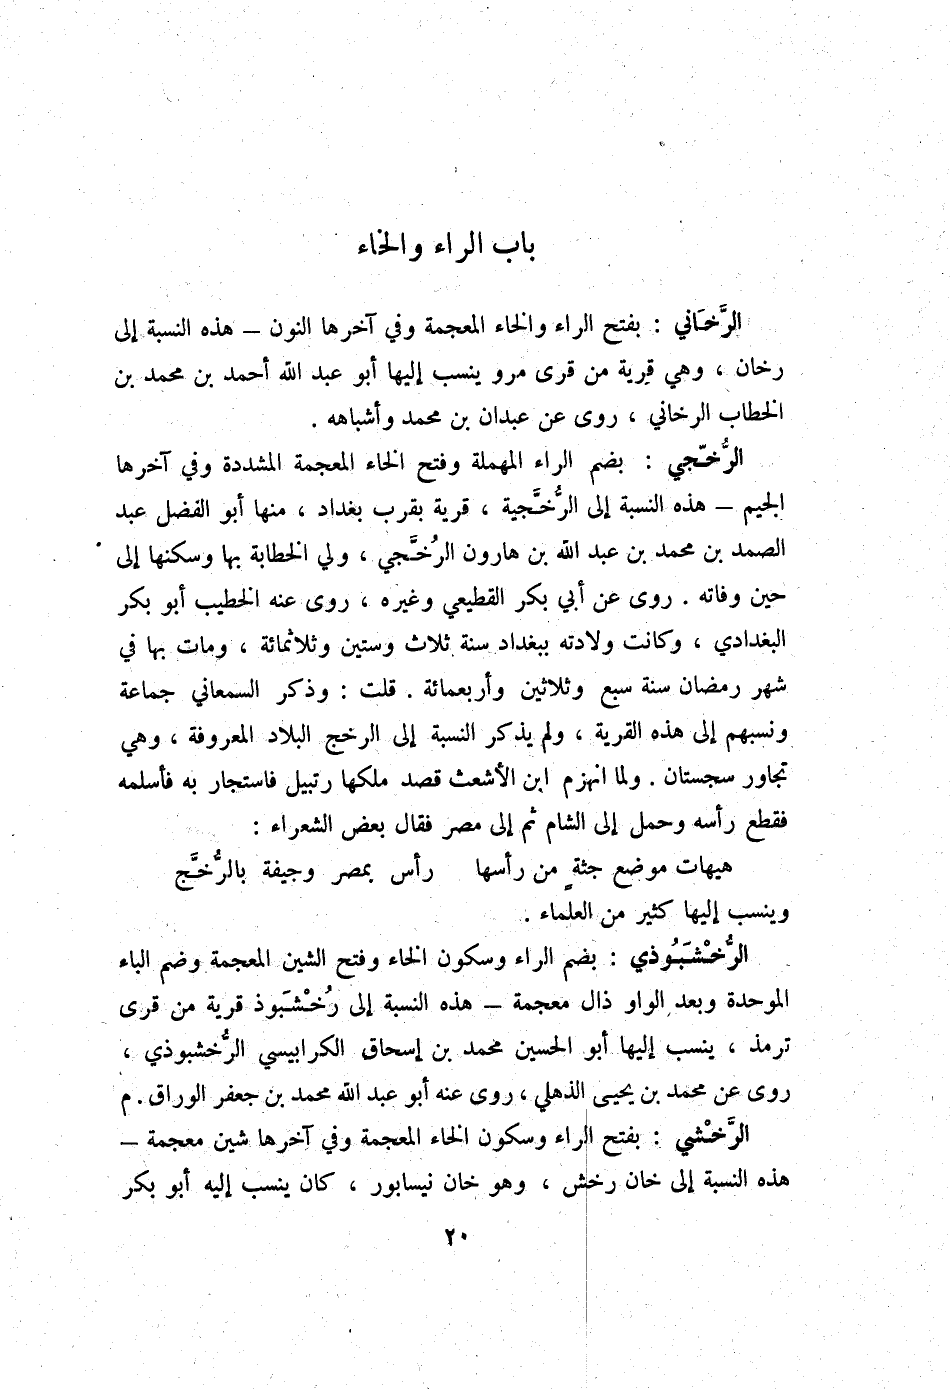 باب الراء والخاء
الرَّخَاني : بفتح الراء والخاء المعجمة وفي آخرها النون – هذه النسبة إلى
رخان ، وهي قرية من قرى مرو ينسب إليها أبو عبد الله أحمد بن محمد بن
الخطاب الرخاني ، روى عن عبدان بن محمد وأشباهه .
الرُّخّجي : بضم الراء المهملة وفتح الخاء المعجمة المشددة وفي آخرها
الجيم – هذه النسبة إلى الرُّخَّجية ، قرية بقرب بغداد ، منها أبو الفضل عبد
الصمد بن محمد بن عبد الله بن هارون الرُخَّجي ، ولي الخطابة بها وسكنها إلى
حين وفاته . روى عن أبي بكر القطيعي وغيره ، روى عنه الخطيب أبو بكر
البغدادي ، وكانت ولادته ببغداد سنة ثلاث وستين وثلاثمائة ، ومات بها في
شهر رمضان سنة سبع وثلاثين وأربعمائة . قلت : وذكر السمعاني جماعة
ونسبهم إلى هذه القرية ، ولم يذكر النسبة إلى الرخج البلاد المعروفة ، وهي
تجاور سجستان . ولما انهزم ابن الأشعث قصد ملكها رتبيل فاستجار به فأسلمه
فقطع رأسه وحمل إلى الشام ثم إلى مصر فقال بعض الشعراء :
هيهات موضع جثةٍ من رأسها رأس بمصر وجيفة بالرُّخَّج
وينسب إليها كثير من العلماء .
الرُّخْشَبُوذي : بضم الراء وسكون الخاء وفتح الشين المعجمة وضم الباء
الموحدة وبعد الواو ذال معجمة – هذه النسبة إلى رُخْشَبوذ قرية من قرى
ترمذ ، ينسب إليها أبو الحسين محمد بن إسحاق الكرابيسي الرُّخشبوذي ،
روى عن محمد بن يحيى الذهلي ، روى عنه أبو عبد الله محمد بن جعفر الوراق . م
الرَّخْشي : بفتح الراء وسكون الخاء المعجمة وفي آخرها شين معجمة –
هذه النسبة إلى خان رخش ، وهو خان نيسابور ، كان ينسب إليه أبو بكر
٢٠